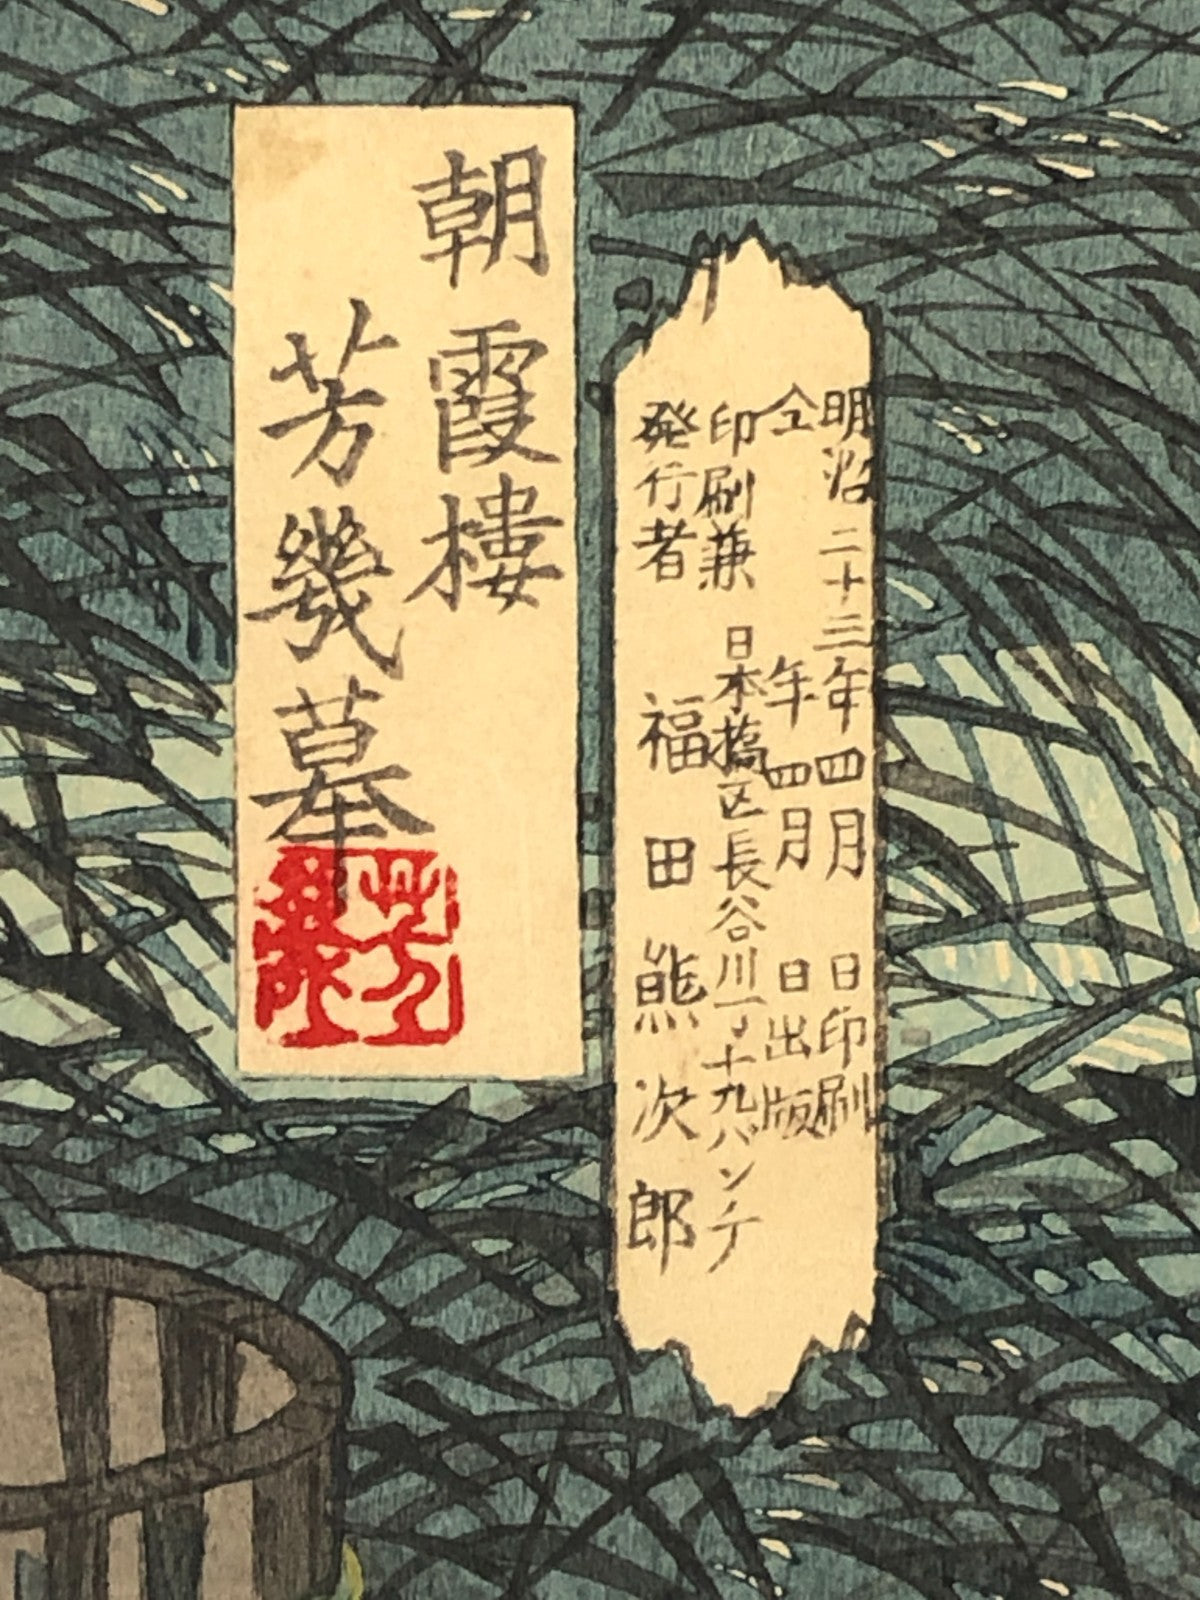 明治二十三年四月 日印刷
仝 年四月 日出版
印刷兼 日本橋区長谷川丁十九バンチ
発行者 福田熊次郎
朝霞楼
芳幾摹
芳幾